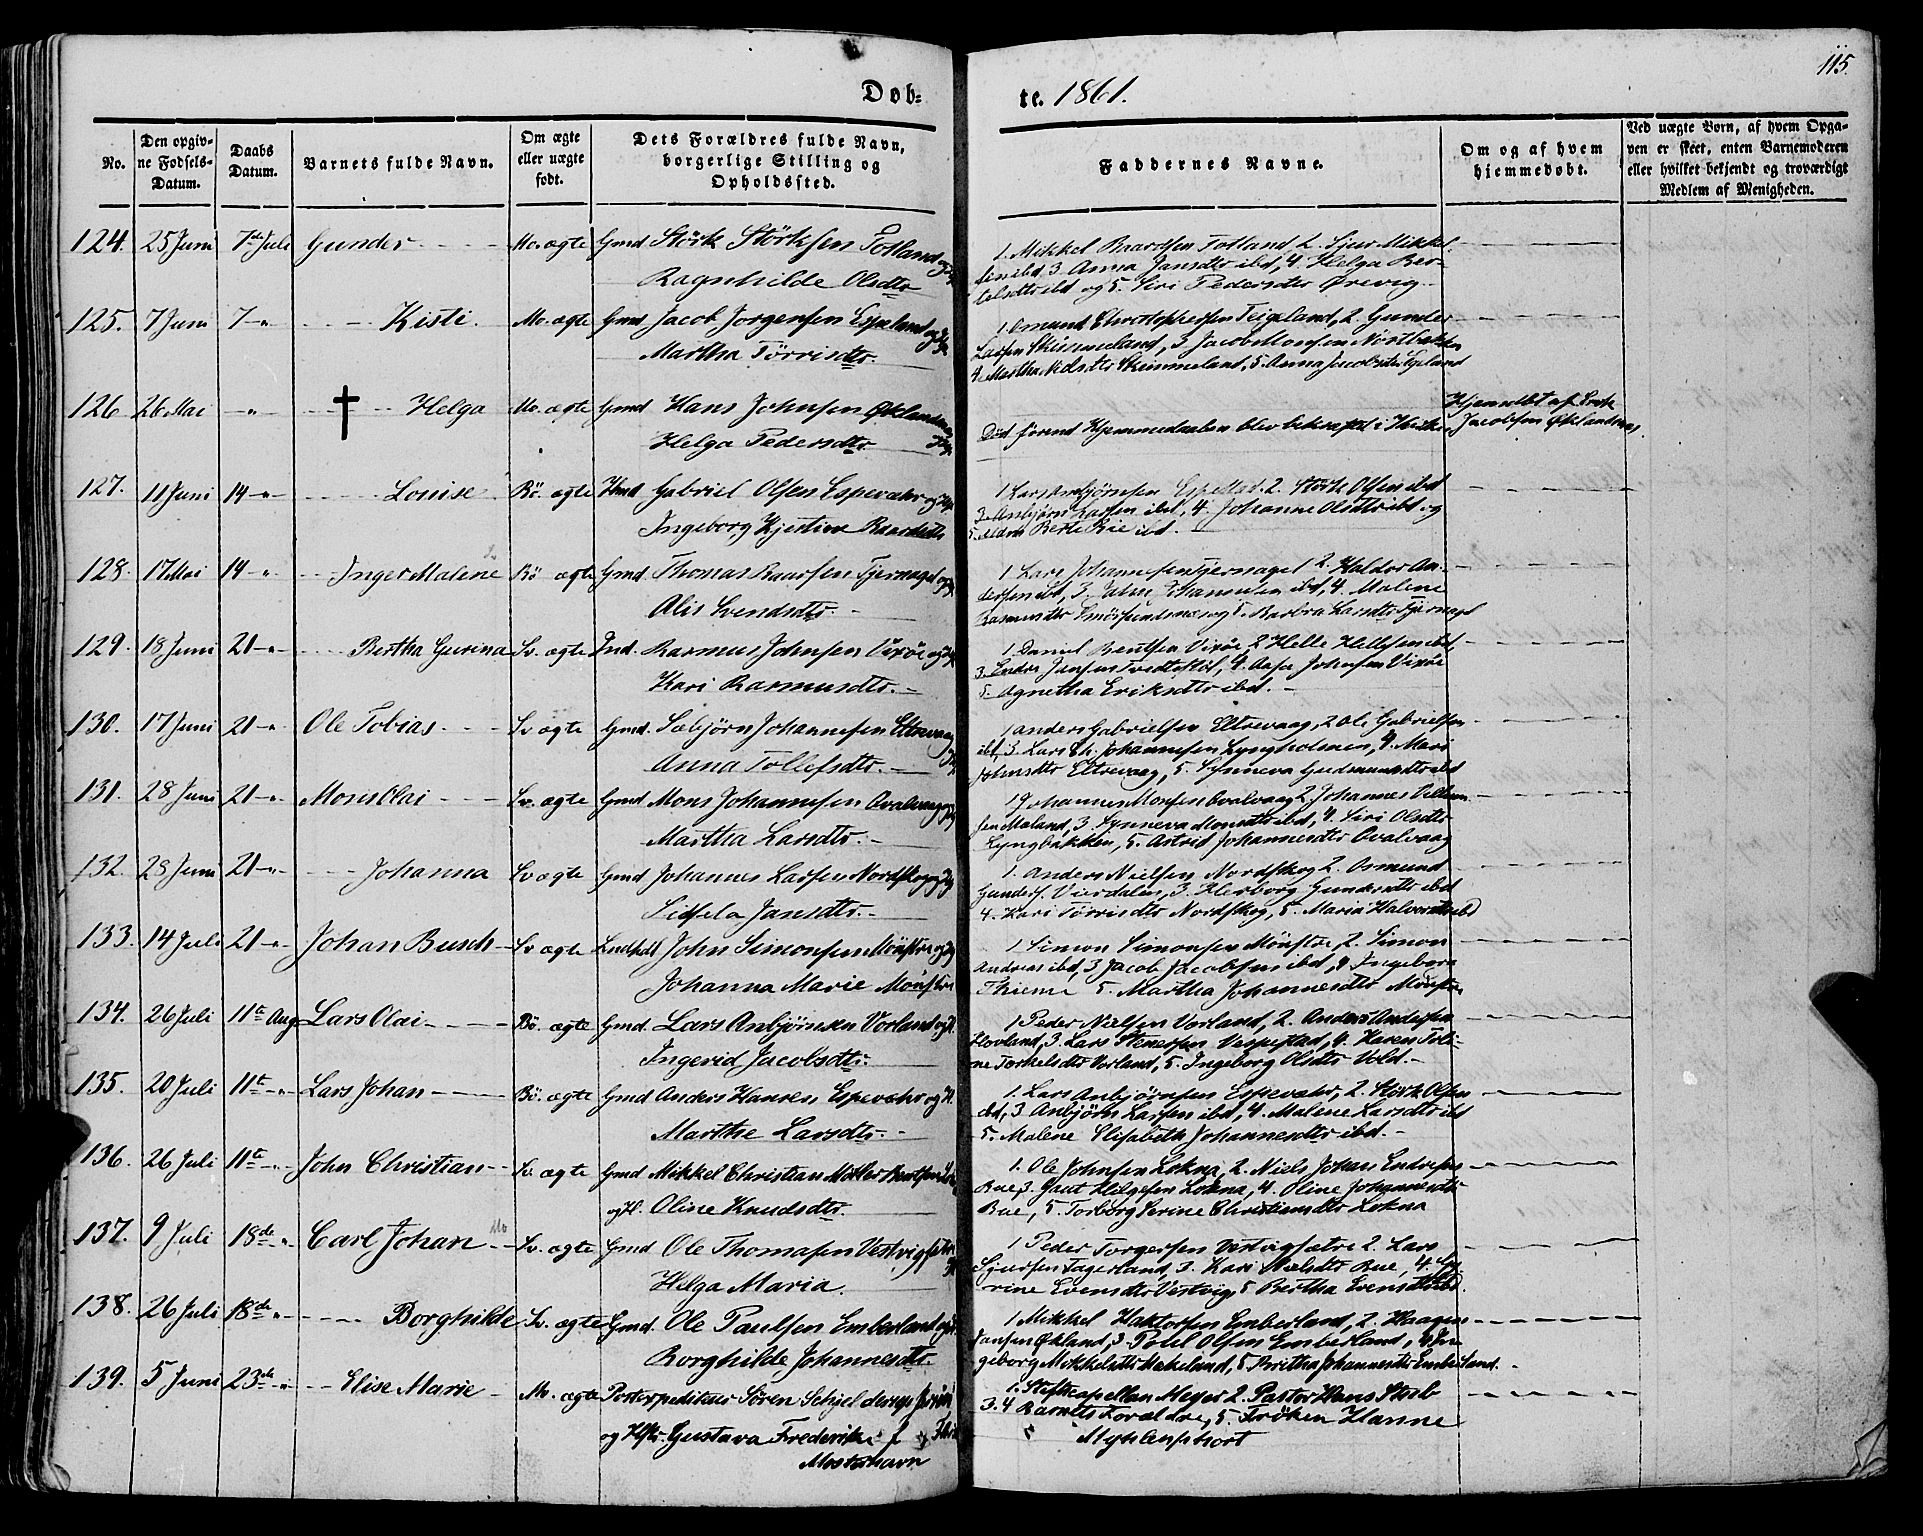 115.
Døb-
te. 1861.
No.
Den opgiv-
ne Fødsels-
Datum.
Daabs
Datum.
Barnets fulde Navn.
Om ægte
eller uægte
født.
Dets Forældres fulde Navn,
borgerlige Stilling og
Opholdssted.
Faddernes Navne.
Om og af hvem
hjemmedøbt.
Ved uægte Børn, af hvem Opga-
ven er skeet, enten Barnemoderen
eller hvilket bekjendt og troværdigt
Medlem af Menigheden.
124. 25 Juni 7de Juli Gunder Mo. ægte Gmd Størk Størksen Totland og
Ragnhilde Olsdtr
1. Mikkel Baardsen Totland 2. Sjur Mikkel-
sen ibd 3. Anna Jansdtr ibd, 4. Helga Ber-
telsdtr ibd og 5. Siri Pedersdtr Ørevig
125. 7 Juni 7 -"- Kisti. Mo. ægte Gmd Jacob Jorgensen Espeland og
Martha Tørrisdtr.
1. Omund Christophersen Teigeland, 2 Gunder
Larsen Skimmeland, 3 Jacob Monsen Nøstbakken
4. Martha Nielsdtr Skimmeland, 5. Anna Jacobsdtr
126 26 Mai -"- † Helga Mo. ægte Gmd Hans Johnsen Øklandsnæs
Helga Pedersdtr
Død førend Hjemmedaaben blev bekræftet i Kirken
Hjemmedøbt af Erik
Jacobsen Øklandsnæs
127. 11 Juni 14 -"- Louise Bø. ægte Hmd Gabriel Olsen Espevæhr og
Ingeborg Kjestine Baardsdtr
1 Lars Anbjørnsen 2. Størk Olsen ibd
3. Anbjørn Larsen ibd, 4. Johanne Olsdtr ibd og
5. Madm Berte Rie ibd.
128. 17 Mai 14 -"- Inger Malene Bø ægte Gmd. Thomas Baarsen Tjernagel og
Alis Svendsdtr.
1 Lars Johannesen Tjernagel 2. Haldor An-
dersen ibd, 3. Johannesen ibd, 4. Malene
Rasmusdtr Smørsundsnæs og 5. Barbra Larsdtr Tjernagel
129. 18 Juni 21 -"- Bertha Gurina Sv. ægte Ind. Rasmus Johnsen Vixøe og
Kari Rasmusdtr.
1. Daniel Bentsen Vixøe 2 Helle Hellesen ibd,
3. Endre Jansen, 4. Johnsen Vixøe
5. Agnetha Eriksdtr ibd.
130. 17 Juni 21 -"- Ole Tobias Sv ægte Gmd. Sæbjørn Johannesen Eltrevaag
Anna Tollefsdtr.
1 Anders Gabrielsen Eltrevaag, 2 Ole Gabrielsen
ibd, 3. Lars Ch. Johannesen Lyngholmen, 4. Mari
Johnsdtr Eltrevaag, 5. Synneva Gudmundsdtr ibd
131. 28 Juni 21 -"- Mons Olai Sv. ægte Gmd Mons Johannesen Qvalvaag og
Martha Larsdtr.
1 Johannes Monsen Qvalvaag 2 Johannes Villum-
sen Maland, 3. Synneva Monsdtr ibd, 4. Siri Olsdtr
Lyngbakken, 5. Astrid Johannesdtr Qvalvaag
132. 28 Juni 21 -"- Johanna Sv ægte Gmd Johannes Larsen Nordskog og
Sidsela Jansdtr.
1. Anders Nielsen Nordskog 2. Osmund
Gunders. Vierdalen, 3. Herborg Gundersdtr ibd
4. Kari Tørrisdtr Nordskog, 5. Maria Halvorsdtr ibd
133. 14 Juli 21 -"- Johan Busch Sv ægte Lndhdl John Simonsen Mønster og
Johanna Marie Mønster
1 Simon Simonsen Mønster, 2. Simon
Andreas ibd, 3 Jacob Jacobsen ibd, 4 Ingeborg
Thieme 5. Martha Johannesdtr Mønster
134. 26 Juli 11te Aug Lars Olai Bø. ægte Gmd. Lars Anbjørnsen Vorland og H.
Ingerid Jacobsdtr.
1 Peder Nielsen Vorland, 2. Anders Andersen
Hovland, 3. Lars Stenersen Vespestad, 4. Karen Toli-
ne Torkelsdtr Vorland, 5. Ingeborg Olsdtr Vold.
135. 20 Juli 11te -"- Lars Johan Bø. ægte Gmd Anders Hansen Espevæhr og H.
Marthe Larsdtr.
1. Lars Anbjørnsen Espevæhr, 2. Størk Olsen
ibd, 3 Anbjørn Larsen ibd, 4. Malene Larsdtr ibd
5. Malene Elisabeth Johannesdtr ibd.
136. 26 Juli 11te -"- John Christian Sv. ægte Gmd Mikkel Christian Møller
og H. Oline Knudsdtr.
1. Ole Johnsen Lokna, 2. Niels Johan Endresen
Bue, 3. Gaut Helgesen Lokna, 4. Oline Johannesdtr
Bue, 5. Torborg Serine Christiansdtr Lokna
137. 9 Juli 18de -"- Carl Johan Mo Sv. ægte Gmd Ole Thomasen Vestvigsætre
Helga Maria.
1 Peder Torgersen Vestvigsætre 2. Lars
Sjursen Fagerland, 3. Kari Nielsdtr Bue, 4. Se-
rine Evensdtr Vestvig, 5 Bertha Evensdtr ibd.
138. 26 Juli 18de -"- Borghilde Sv. ægte Gmd. Ole Paulsen Emberland og
Borghilde Johannesdtr.
1 Mikkel Haktorsen Emberland, 2. Haagen
Jansen Økland, 3. Potel Olsen Emberland, 4 In-
geborg Mikkelsdtr, 5 Brita Johannesdtr Emberland.
139. 5 Juni 23de -"- Elise Marie Mo. ægte Postexpediteur Søren Schjelderup
og Hstr. Gustava Frederikke
Mosterhavn
1. Stiftscapellan Meyer 2. Pastor Hans Stub
3. 4 Barnets Forældre, 5. Frøken Hanne
Myhlenphort